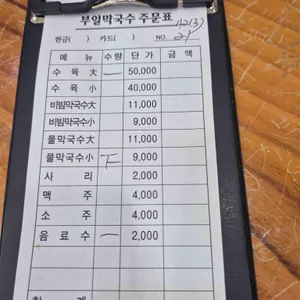 부일막국수 주문표
현금( ) 카드( ) NO. 42(3)
메 뉴 수량 단 가 금 액
수 육 大 一 50,000
수 육 小 40,000
비빔막국수大 11,000
비빔막국수小 9,000
물막국수大 11,000
물막국수小 下 9,000
사 리 2,000
맥 주 4,000
소 주 4,000
음 료 수 一 2,000
합 계